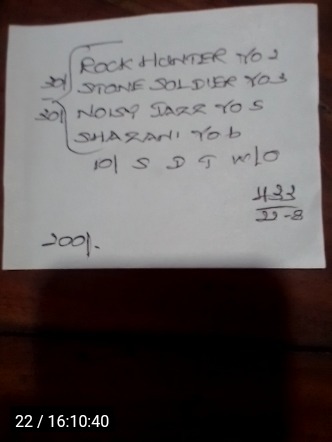 30/ ROCK HUNTER YO 2
STONE SOLDIER YO 3
30/ NOISY JAZZ YO 5
SHAZANI YO 6
10/ S D T W/O
433
22-8
200/.
22 / 16:10:40